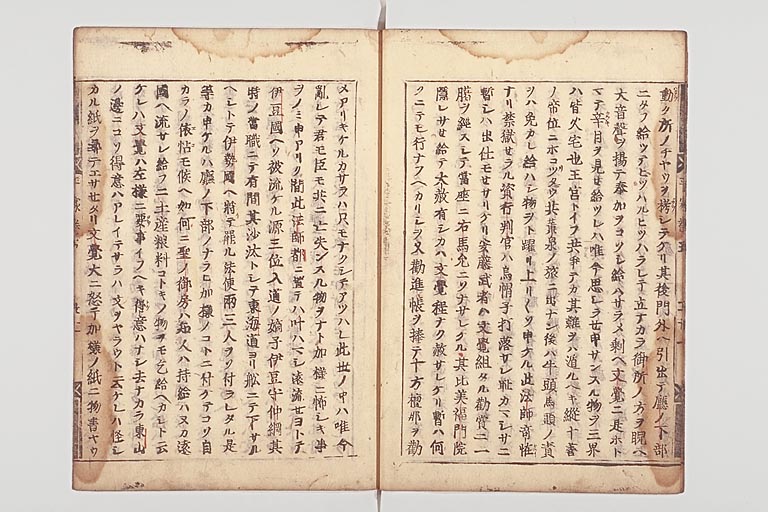 動ク所ノチヤウヲ拷シテクリ其後門外ヘ引出テ廳ノ下部
ニタフ給ツテヒツハルヒツハラレテ立ナカラ御所ノ方ヲ睨ヘ
大音聲ヲ揚テ奉加ヲコソシ給ヘサラメ剰ヘ文覺ニ是ホト
マテ辛目ヲ見セ給ツレハ唯今思シラセ申サンスル物ヲ三界
ハ皆火宅也王宮トイフ共争テカ其難ヲハ遁ルヘキ縦十善
ノ帝位ニホコツタウ共黄泉ノ旅ニ出ナン後ハ牛頭馬頭ノ責
ヲハ免カレ給ハシ物ヲト躍リ上リ〱ソ申ケル此法師奇怪
ナリ禁獄セラル資行判官ハ烏帽子打落サレ恥カマシサニ
暫シハ出仕モせサリケリ安藤武者ハ文覺組タル勧賞ニ一
﨟ヲ経スシテ當座ニ右馬允ニソナサレケル其比美福門院
隠レサせ給テ大赦有シカハ文覺程ナク赦サレケリ暫ハ何
クニテモ行ナフヘカリシヲ又勧進帳ヲ捧テ十方檀那ヲ勧
メアリキケルカサラハ只モナクシテアツハレ此世ノ中ハ唯今
亂レテ君モ臣モ共ニ亡失ンスル物ヲナト加様ニ怖シキ事
ヲノミ申アリク間此法師都ニ置テハ叶ハシ遠流せヨトテ
伊豆國ヘソ被流ケル源三位入道ノ嫡子伊豆守仲綱其
時ノ當職ニテ有間其沙汰トシテ東海道ヨリ舩ニテ下サル
ヘシトテ伊勢國ヘ将テ罷ル法使兩三人ヲソ付ラレタル是
等カ申ケルハ廳ノ下部ノナラヒ加様ノコトニ付ケテコソ自
カラノ依怙モ候ヘ如何ニ聖ノ御房ハ知人ハ持給ハヌカ遠
國ヘ流サレ給フニ土産粮料コトキノ物ヲモ乞給ヘカシト云
ケレハ文覺ハ左様ニ要事イフヘキ得意ハナシ去ナカラ東山
ノ邊ニコソ得意ハアレイテサラハ文ヲヤラウト云ケレハ怪シ
カル紙ヲ尋テエサせタリ文覺大ニ怒テ加様ノ紙ニ物書ヤウ